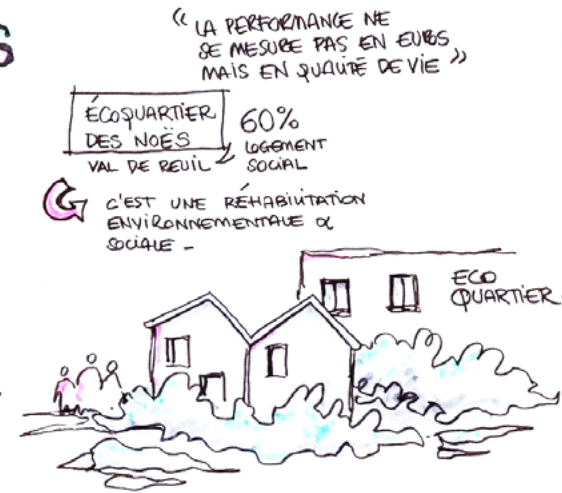 S
« LA PERFORMANCE NE
SE MESURE PAS EN EUROS
MAIS EN QUALITÉ DE VIE »
ÉCOQUARTIER
DES NOËS
VAL DE REUIL
60%
LOGEMENT
SOCIAL
C'EST UNE RÉHABILITATION
ENVIRONNEMENTALE &
SOCIALE -
ECO
QUARTIER